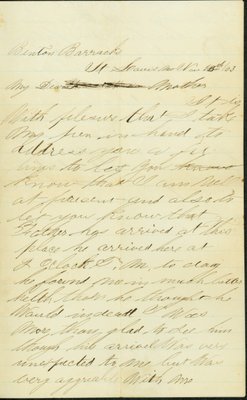 Benton Barracks
St Louis Mo Nov 15th 63
My Dear Mother
With pleasure that I take
My pen in hand to
address you a few
lines to let you
know that I am well
at present and also to
let you know that
Father has arrived at this
place he arrived here at
2 Oclock P. M. to day
he found me in much better
helth than he thought he
Would indeed I Was
More than glad to See him
though his arrival Was very
unexpected to me but Was
very agreable With me